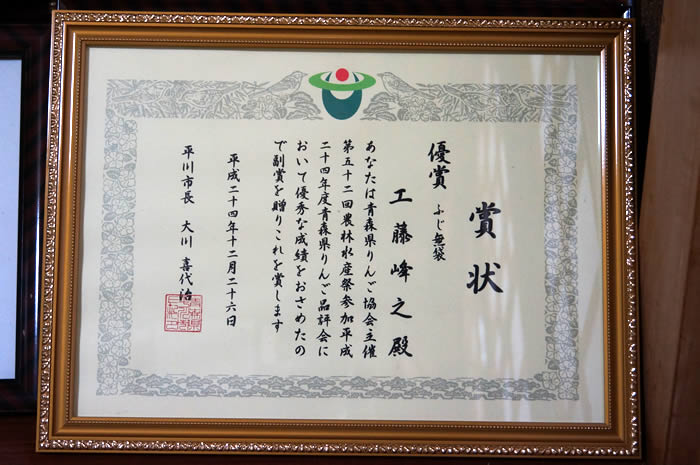 賞状
優賞　ふじ無袋
工藤峰之殿
あなたは青森県りんご協会主催
第五十二回農林水産祭参加平成
二十四年度青森県りんご品評会に
おいて優秀な成績をおさめたの
で副賞を贈りこれを賞します
平成二十四年十二月二十六日
平川市長　大川喜代治